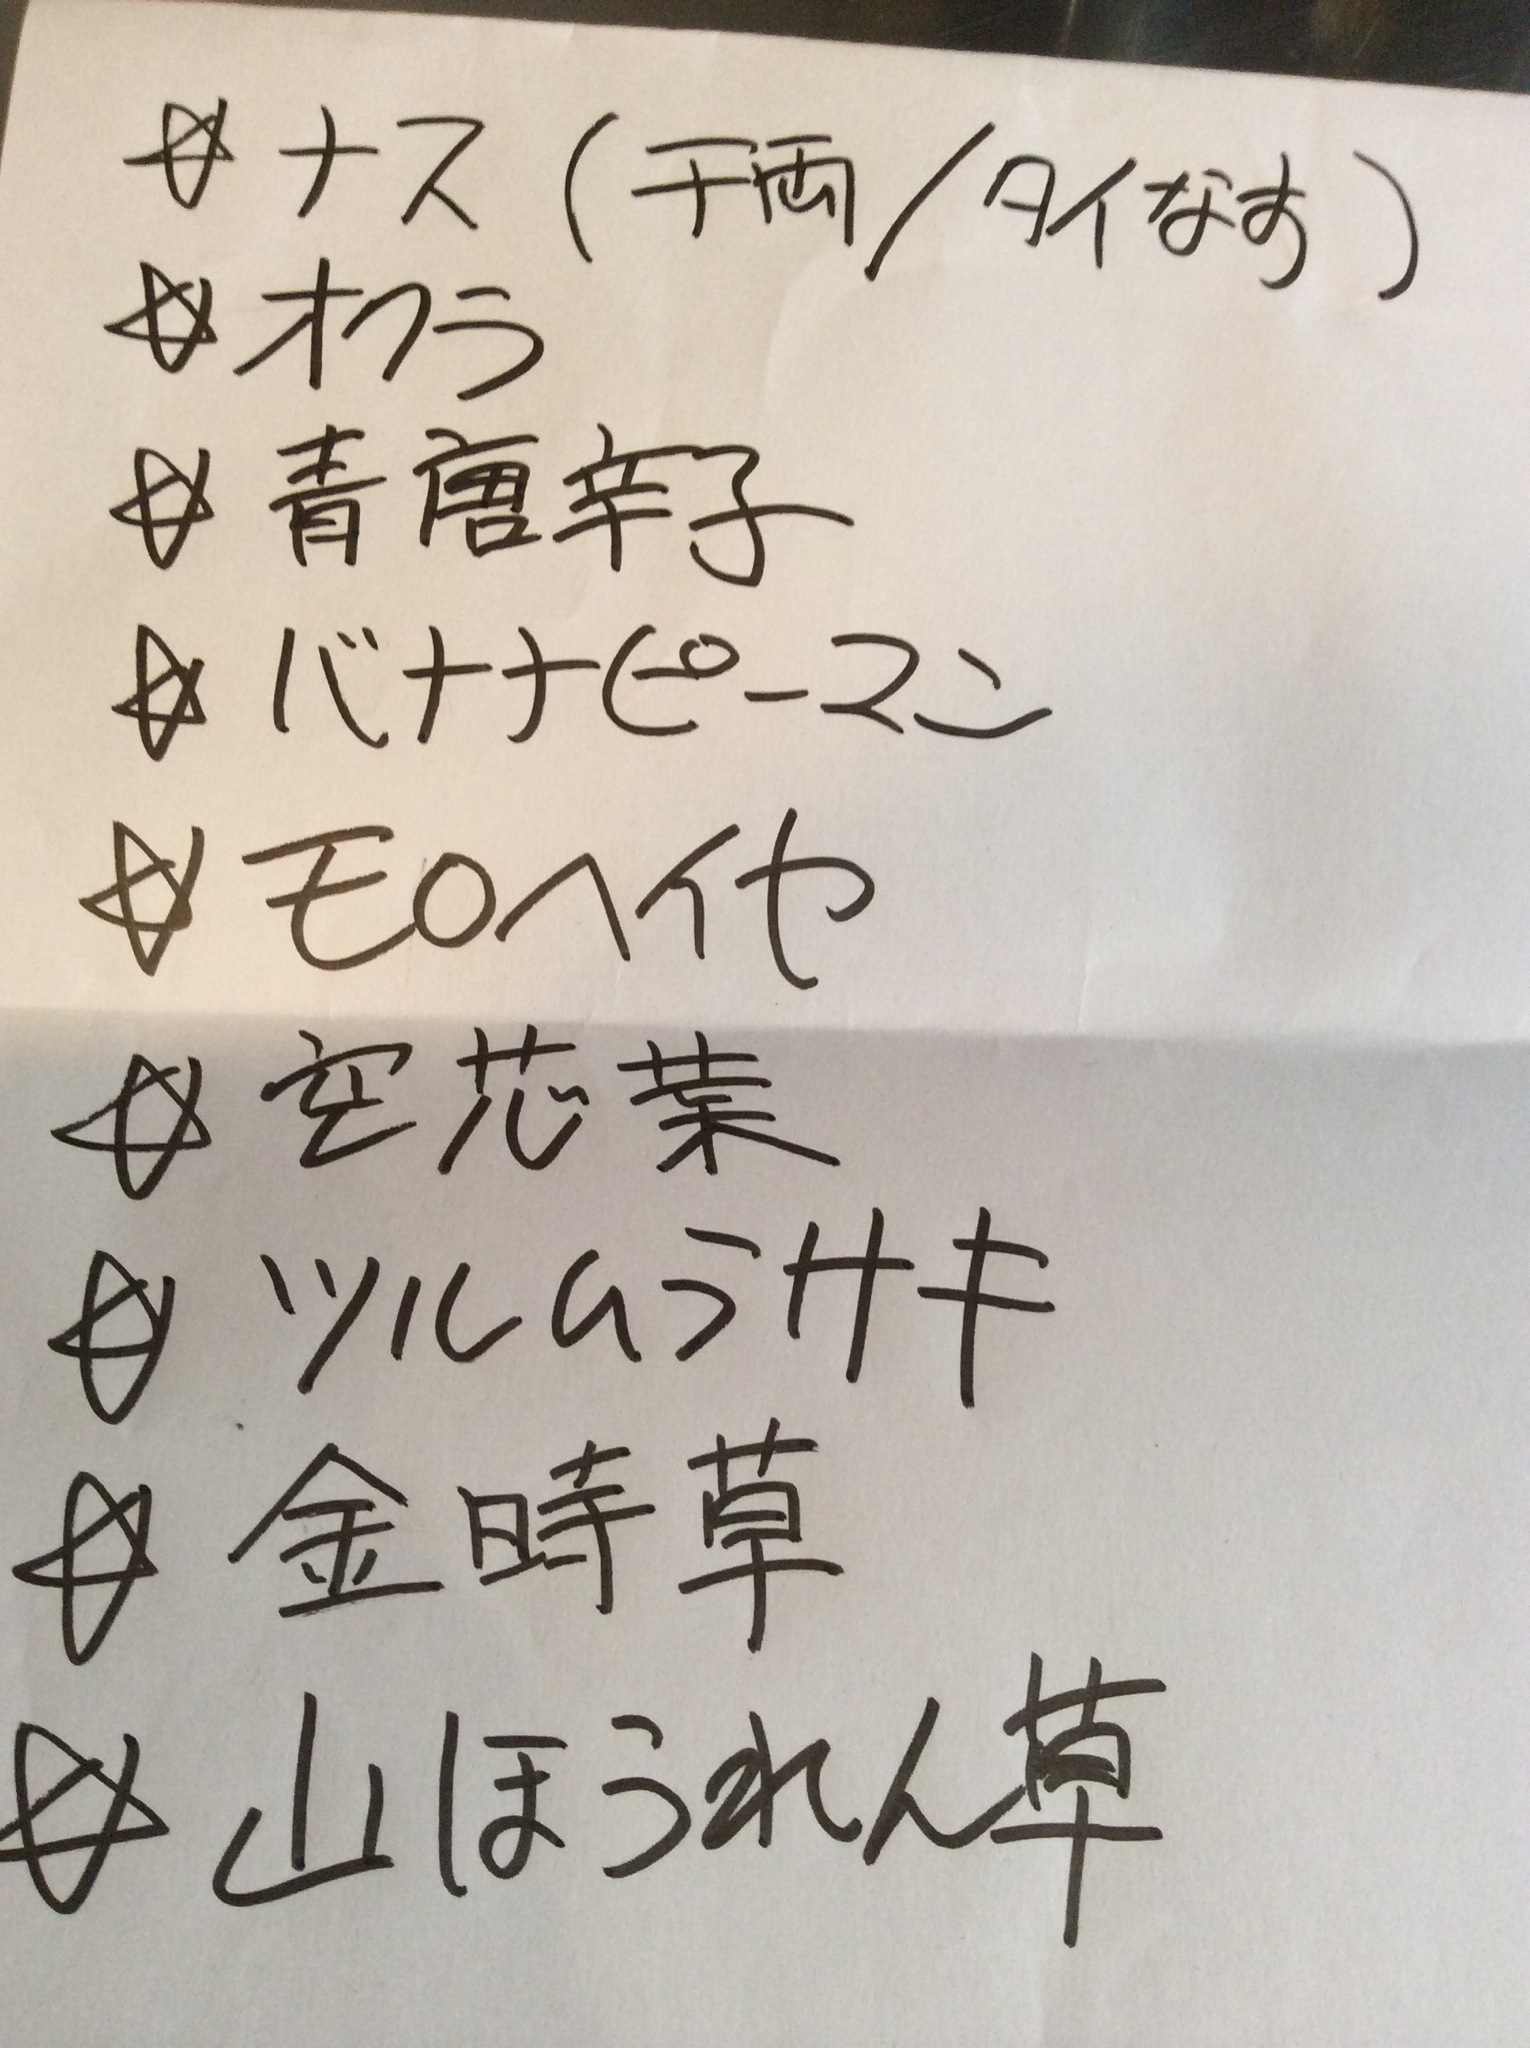 ☆ナス(千両/タイなす)
☆オクラ
☆青唐辛子
☆バナナピーマン
☆モロヘイヤ
☆空芯葉
☆ツルムラサキ
☆金時草
☆山ほうれん草